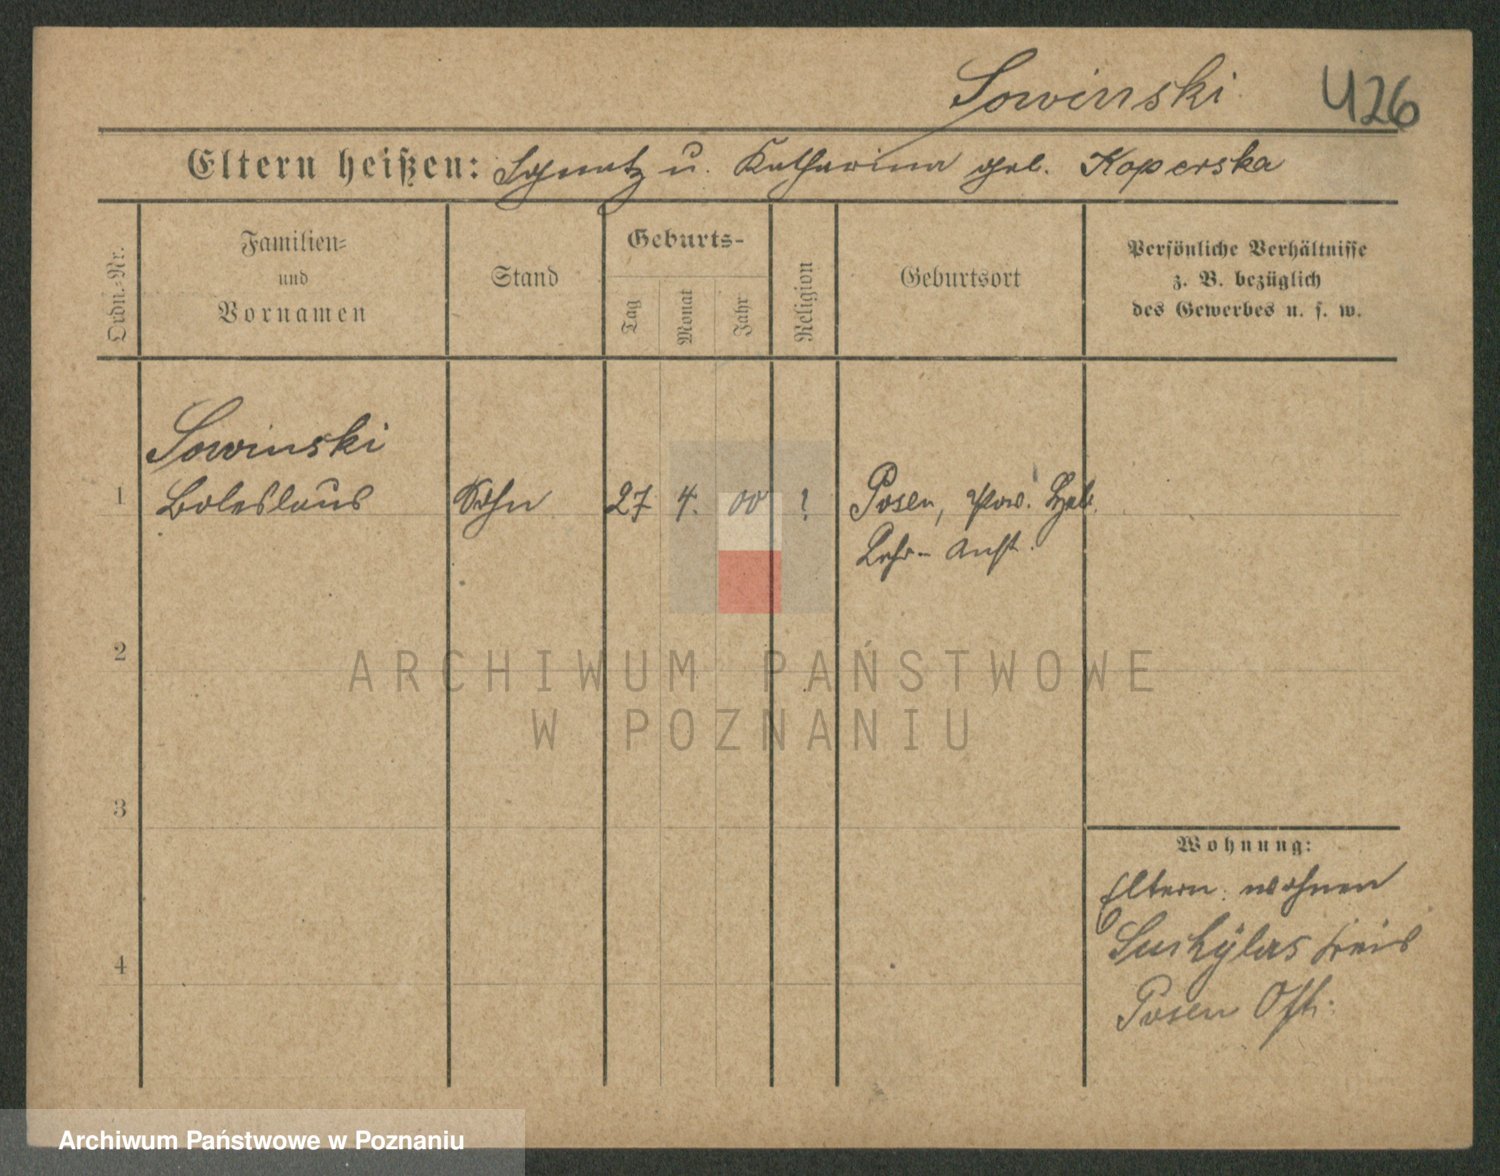 Sowinski
426
Eltern heißen: Ignatz u. Katharina geb. Koperska
Ordn.-Nr.
Familien-
und
Vornamen
Stand
Geburts-
Tag
Monat
Jahr
Religion
Geburtsort
Persönliche Verhältnisse
z. B. bezüglich
des Gewerbes u. s. w.
Sowinski
1 Boleslaus Sohn 27 4. 00 ? Posen, Prov. Heb.
Lehr-Anst.
2
ARCHIWUM PAŃSTWOWE
W POZNANIU
3
Wohnung:
Eltern wohnen
4
Suchylas Kreis
Posen Ost.
Archiwum Państwowe w Poznaniu